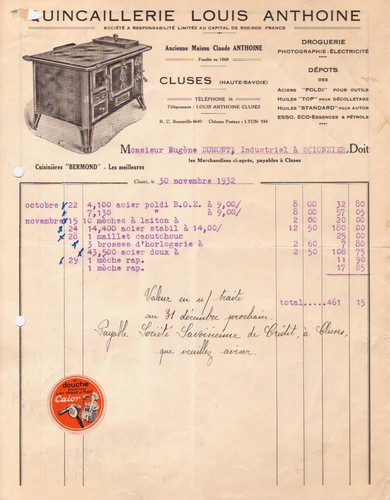 QUINCAILLERIE LOUIS ANTHOINE
SOCIÉTÉ A RESPONSABILITÉ LIMITÉE AU CAPITAL DE 900.000 FRANCS
Ancienne Maison Claude ANTHOINE
Fondée en 1860
CLUSES (HAUTE-SAVOIE)
TÉLÉPHONE 16
Télégrammes : LOUIS ANTHOINE CLUSES
R. C. Bonneville 4649 Chèques Postaux : LYON 024
DROGUERIE
PHOTOGRAPHIE-ÉLECTRICITÉ
DÉPOTS
DES
ACIERS "POLDI" POUR OUTILS
HUILES "TOP" POUR DÉCOLLETAGE
HUILES "STANDARD" POUR AUTOS
ESSO, ECO-ESSENCES & PÉTROLE
Monsieur Eugène DUMONT, Industriel à SCIONZIER, Doit
les Marchandises ci-après, payables à Cluses
Cuisinières "BERMOND" - Les meilleures
Cluses, le 30 novembre 1932
octobre 22 4,100 acier poldi B.O.Z. à 9,00/ 8 00 32 80
7,130 " à 9,00/ 8 00 57 05
novembre 15 10 mèches à laiton à 2 00 20 00
24 14,400 acier stabil à 14,00/ 12 50 180 00
28 1 maillet caoutchouc 25 00
3 brosses d'horlogerie à 2 60 7 80
43,500 acier doux à 2 50 108 75
29 1 mèche rap. 11 90
1 mèche rap. 17 85
total.... 461 15
Valeur en n/ traite
au 31 décembre prochain.
Payable Société Savoisienne de Crédit, à Cluses,
que veuillez aviser.
douche
Calor